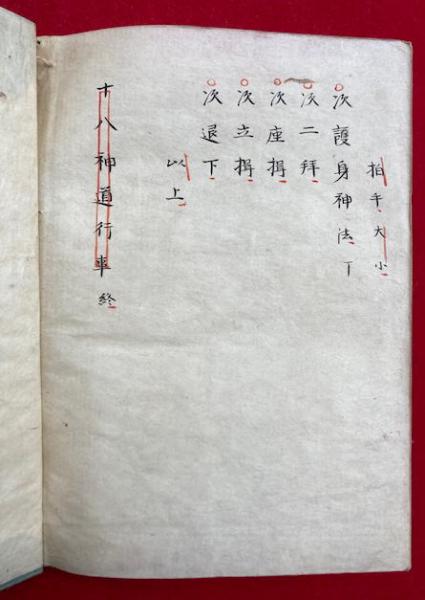 拍手大小
次護身神法
次二拝
次座揖
次立揖
次退下
以上
十八神道行事終